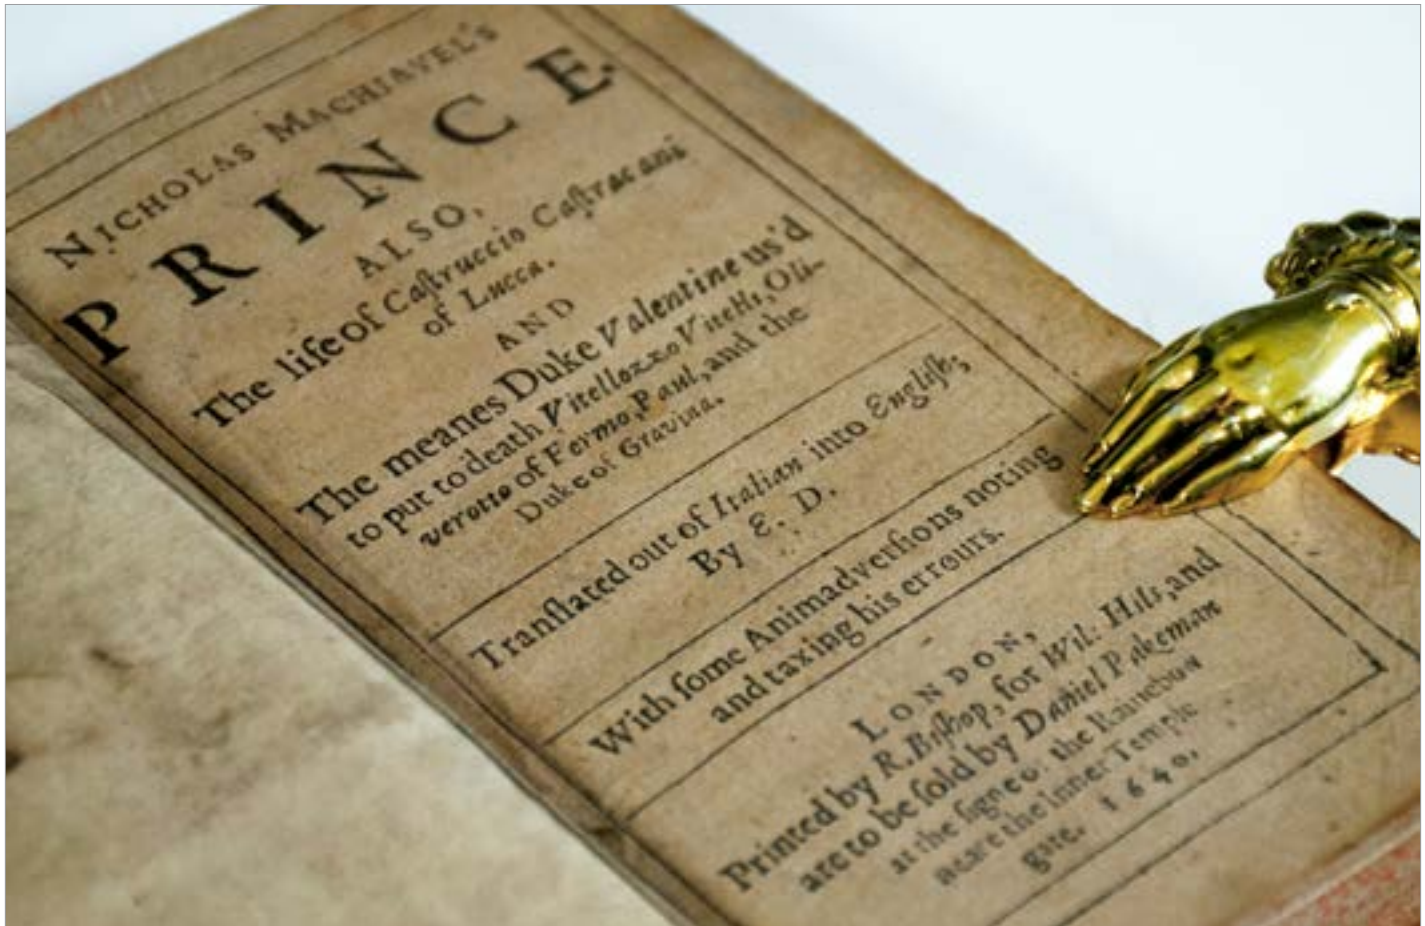 NICHOLAS MACHIAVEL'S
PRINCE
ALSO,
The life of Caſtruccio Caſtracani
of Lucca.
AND
The meanes Duke Valentine us'd
to put to death Vitellozzo Vitelli, Oli-
verotto of Fermo, Paul, and the
Duke of Gravina.
Tranſlated out of Italian into Engliſh;
By E. D.
With ſome Animadverſions noting
and taxing his errours.
LONDON,
Printed by R. Biſhop, for Wil: Hils, and
are to be ſold by Daniel Pakeman
at the ſigne of the Rainebow
neare the Inner Temple
gate. 1640.